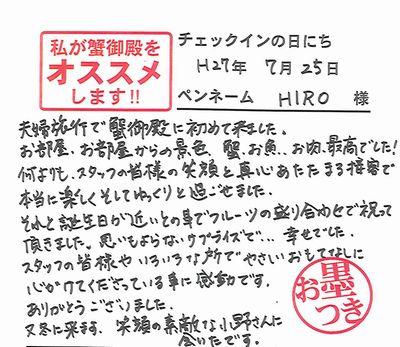 私が蟹御殿を
オススメ
します!!
チェックインの日にち
H27年 7月25日
ペンネーム HIRO 様
夫婦旅行で蟹御殿に初めて来ました。
お部屋、お部屋からの景色、蟹、お魚、お肉、最高でした!
何よりも、スタッフの皆様の笑顔と真心あたたまる接客で
本当に楽しくそしてゆっくりと過ごせました。
それと誕生日が近いとの事でフルーツの盛り合わせで祝って
頂きました。思いもよらないサプライズで…幸せでした。
スタッフの皆様やいろいろな所でやさしいおもてなしに
心がけてくださっている事に感動です。
ありがとうございました。
又冬に来ます、笑顔の素敵な小野さんに
会いたいです。
お墨
つき